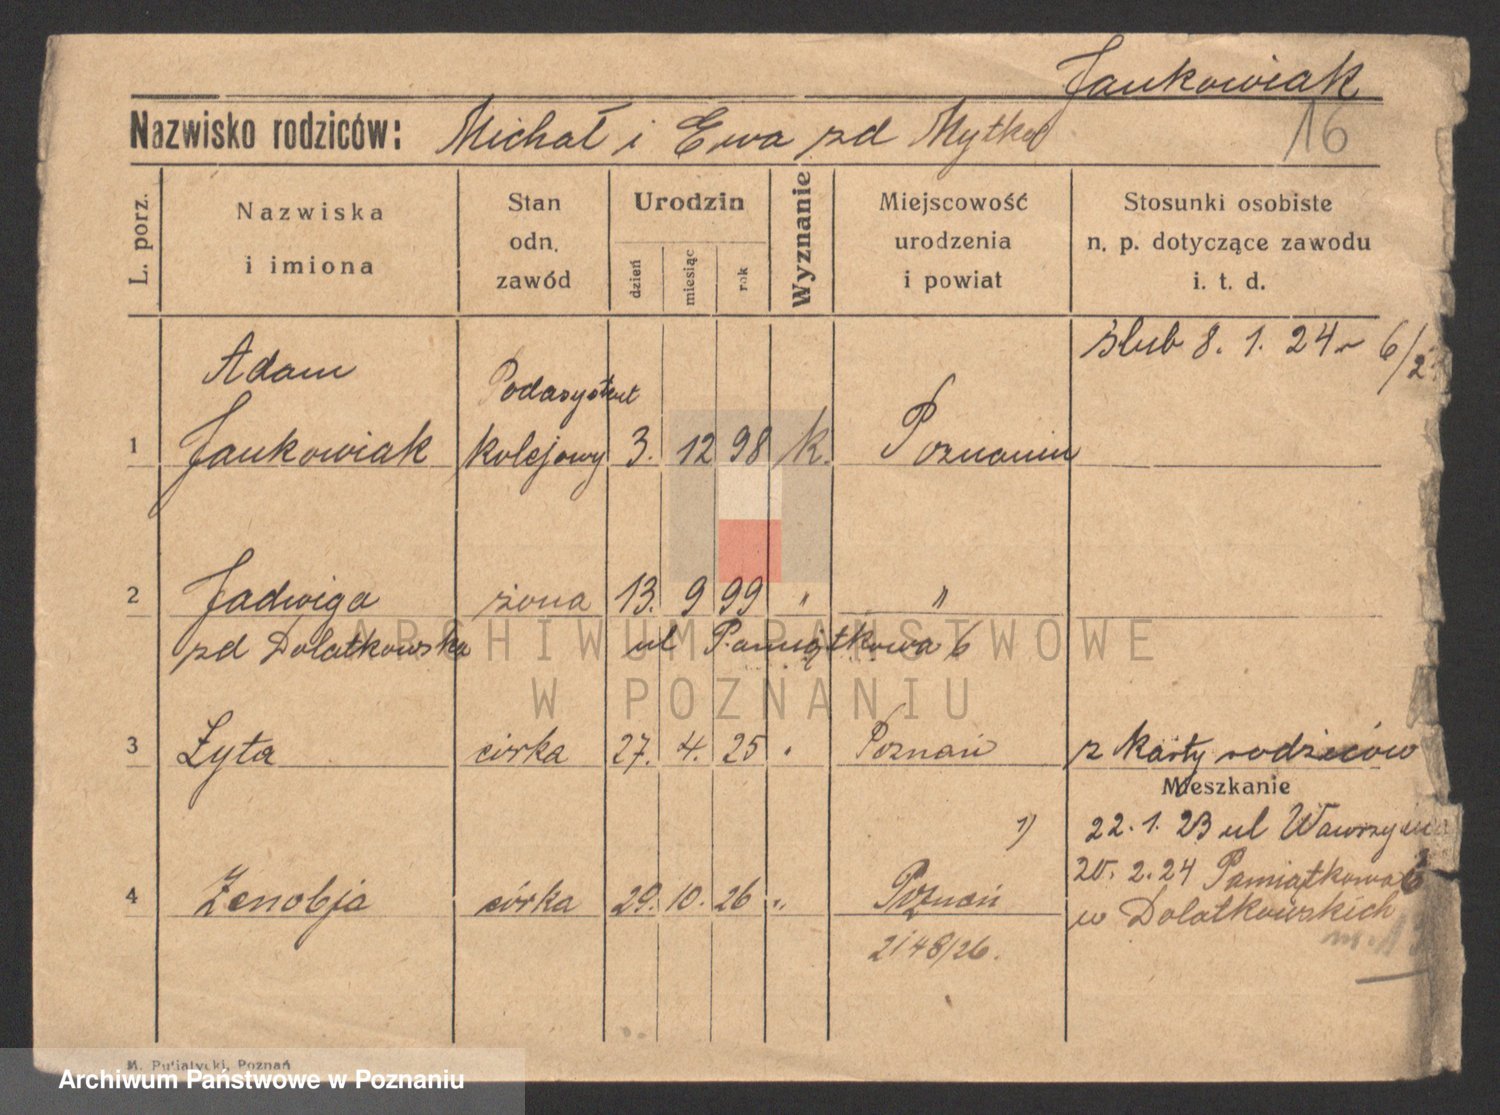 Jankowiak
Nazwisko rodziców: Michał i Ewa zd Mytko
16
L. porz.
Nazwiska
i imiona
Stan
odn.
zawód
Urodzin
dzień
miesiąc
rok
Wyznanie
Miejscowość
urodzenia
i powiat
Stosunki osobiste
n. p. dotyczące zawodu
i. t. d.
ślub 8. 1. 24 r 6/2
Adam
Podasystent
1 Jankowiak kolejowy 3. 12 98 k. Poznaniu
2 Jadwiga żona 13. 9 99 " "
zd Dolatkowska ul Pamiątkowa 6
3 Zyta córka 27. 4. 25 " Poznań z karty rodziców
Mieszkanie
1) 22. 1. 23 ul Wawrzyńca
20. 2. 24 Pamiątkowa 6
4 Zenobja córka 29. 10. 26 " Poznań
w Dolatkowskich
2148/26.
M. Putiatycki, Poznań
ARCHIWUM PAŃSTWOWE
W POZNANIU
Archiwum Państwowe w Poznaniu